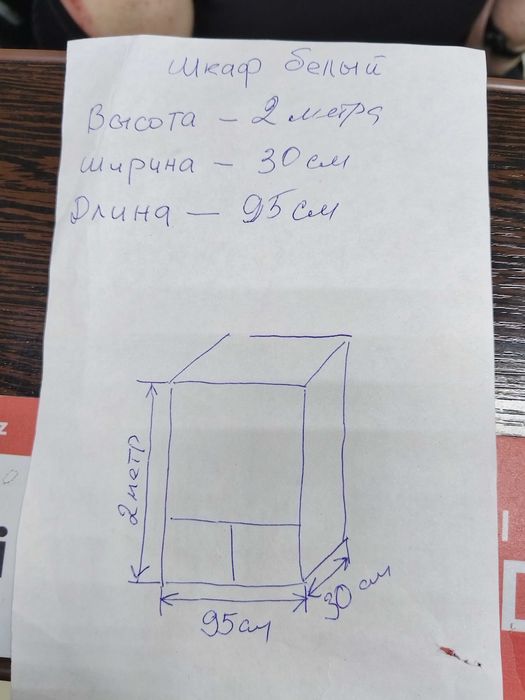 Шкаф белый
Высота – 2 метра
Ширина – 30 см
Длина – 95 см
2 метр
95 см
30 см
z
i